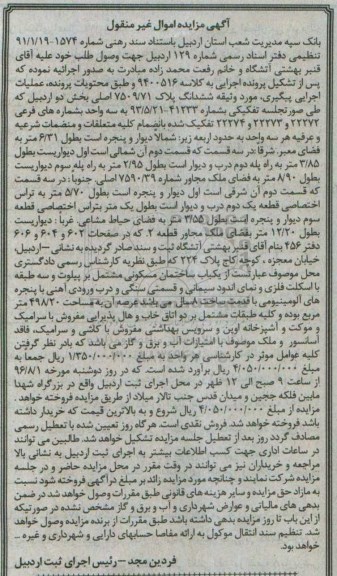 آگهی مزایده اموال غیر منقول
بانک سپه مدیریت شعب استان اردبیل باستناد سند رهنی شماره ۱۵۷۴-۹۱/۱/۱۹
تنظیمی دفتر اسناد رسمی شماره ۱۲۹ اردبیل جهت وصول طلب خود علیه آقای
قنبر بهشتی آتشگاه و خانم رفعت محمد زاده مبادرت به صدور اجرائیه نموده که
پس از تشکیل پرونده اجرایی به کلاسه ۹۴۰۰۵۱۶ و طبق محتویات پرونده، عملیات
اجرایی پیگیری، مورد وثیقه ششدانگ پلاک ۷۵۰۹/۷۱ اصلی بخش دو اردبیل که
طی صورتجلسه تفکیکی بشماره ۴۱۲۳۳-۹۳/۵/۲۱ به سه واحد بشماره های فرعی
۲۲۲۷۲ و ۲۲۲۷۳ و ۲۲۲۷۴ تفکیک شده بانضمام کلیه متعلقات و منضمات شرعیه
و عرفیه هر سه واحد به حدود اربعه زیر: شمالا دیوار و پنجره است بطول ۶/۳۱ متر به
فضای معبر. شرقا: در سه قسمت که قسمت دوم آن شمالی است اول دیواریست بطول
۳/۸۵ متر به راه پله دوم درب و دیوار است بطول ۲/۹۵ متر به راه پله سوم دیواریست
بطول ۸/۹۰ متر به فضای ملک مجاور شماره ۷۵۹۰/۳۹ اصلی. جنوبا : در سه قسمت
که قسمت دوم آن شرقی است اول دیوار و پنجره است بطول ۵/۷۰ متر به تراس
اختصاصی قطعه یک دوم درب و دیوار است بطول یک متر بتراس اختصاصی قطعه
سوم دیوار و پنجره است بطول ۳/۵۵ متر به فضای حیاط مشاعی. غربا : دیواریست
بطول ۱۲/۲۰ متر بفضای ملک مجاور قطعه ۲. که در صفحات ۶۰۲ و ۶۰۴ و ۶۰۶
دفتر ۴۵۶ بنام آقای قنبر بهشتی آتشگاه ثبت و سند صادر گردیده به نشانی – اردبیل،
خیابان معجزه ، کوچه کاج پلاک ۲۲۴ که طبق نظریه کارشناس رسمی دادگستری
محل موصوف عبارتست از یکباب ساختمان مسکونی مشتمل بر پیلوت و سه طبقه
با اسکلت فلزی و نمای اندود سیمانی و قسمتی سنگی و درب ورودی آهنی با پنجره
های آلومینیومی با قدمت ساخت می باشد عرصه آن به مساحت ۴۹۸/۲۰ متر
مربع بوده و کلیه طبقات مشتمل بر دو اتاق خاب و هال پذیرایی مفروش با سرامیک
و موکت و آشپزخانه اوپن و سرویس بهداشتی مفروش با کاشی و سرامیک، فاقد
آسانسور و ملک موصوف با امتیازات آب و برق و گاز می باشد که بادر نظر گرفتن
کلیه عوامل موثر در کارشناسی هر واحد به مبلغ ۱/۳۵۰/۰۰۰/۰۰۰ ریال جمعا به
مبلغ ۴/۰۵۰/۰۰۰/۰۰۰ ریال برآورد شده است. که در روز دوشنبه مورخه ۹۶/۸/۱
از ساعت ۹ صبح الی ۱۲ ظهر در محل اجرای ثبت اردبیل واقع در بزرگراه شهدا
مابین فلکه ججین و میدان قدس جنب تالار میلاد از طریق مزایده فروخته خواهد .
مزایده از مبلغ ۴/۰۵۰/۰۰۰/۰۰۰ ریال شروع و به بالاترین قیمت که خریدار داشته
باشد فروخته خواهد شد. فروش نقدی است. هرگاه روز تعیین شده با تعطیل رسمی
مصادف گردد روز بعد از تعطیل جلسه مزایده تشکیل خواهد شد. طالبین می توانند
در ساعات اداری جهت کسب اطلاعات بیشتر به اجرای ثبت اردبیل به نشانی بالا
مراجعه و خریداران نیز می توانند در وقت مقرر در محل مزایده حاضر و در جلسه
مزایده شرکت نمایند و چنانچه مورد مزایده زائد بر مبلغ در آگهی فروخته شود نسبت
به مازاد حق مزایده و سایر هزینه های قانونی طبق مقررات وصول خواهد شد در ضمن
بدهی های مالیاتی و عوارض شهرداری و آب و برق و گاز مشخص نشده در صورتیکه
از این باب تا روز مزایده بدهی داشته باشد طبق مقررات از برنده مزایده وصول خواهد
شد. تنظیم سند انتقال موکول به ارائه مفاصا حسابهای دارایی و شهرداری و غیره ...
خواهد بود.
فردین مجد – رئیس اجرای ثبت اردبیل